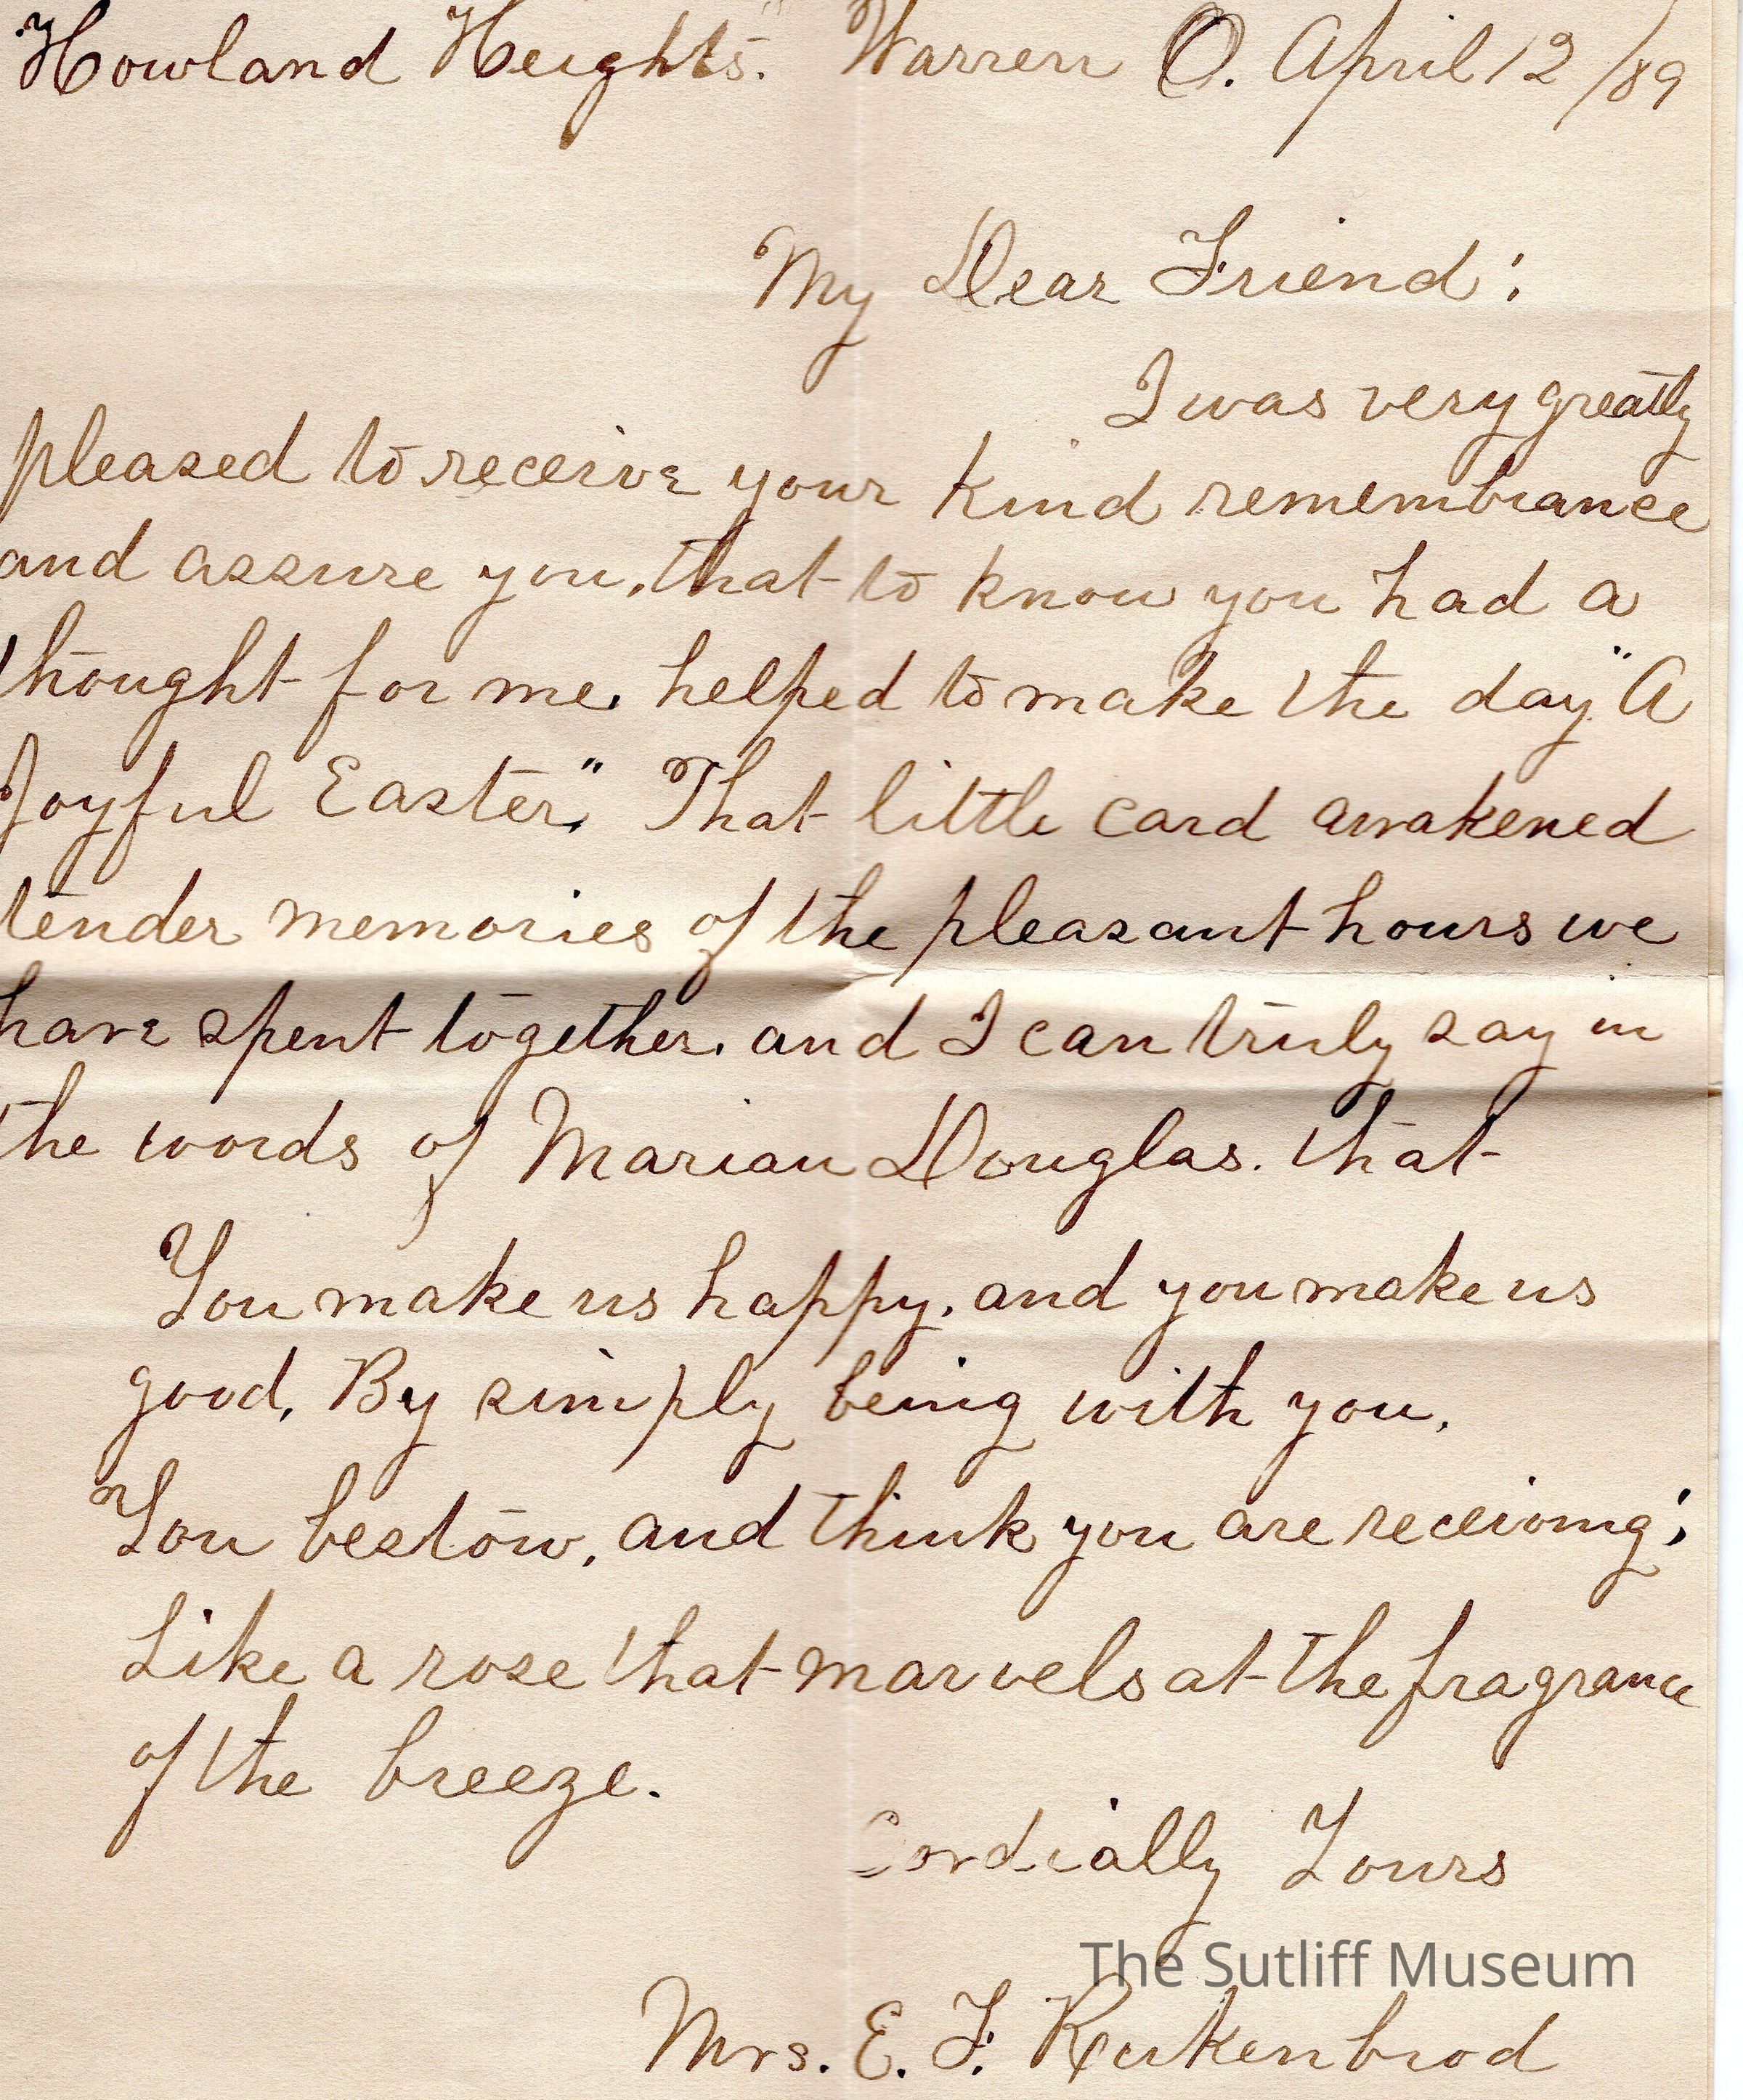 "Howland Heights." Warren O. April 12/89
My Dear Friend:
I was very greatly
pleased to receive your kind remembrance
and assure you, that to know you had a
thought for me, helped to make the day "A
Joyful Easter." That little card awakened
tender memories of the pleasant hours we
have spent together, and I can truly say in
the words of Marian Douglas. that
You make us happy, and you make us
good, By simply being with you,
You bestow, and think you are receiving;
Like a rose that marvels at the fragrance
of the breeze.
Cordially Yours
The Sutliff Museum
Mrs. E. F. Rukenbrod